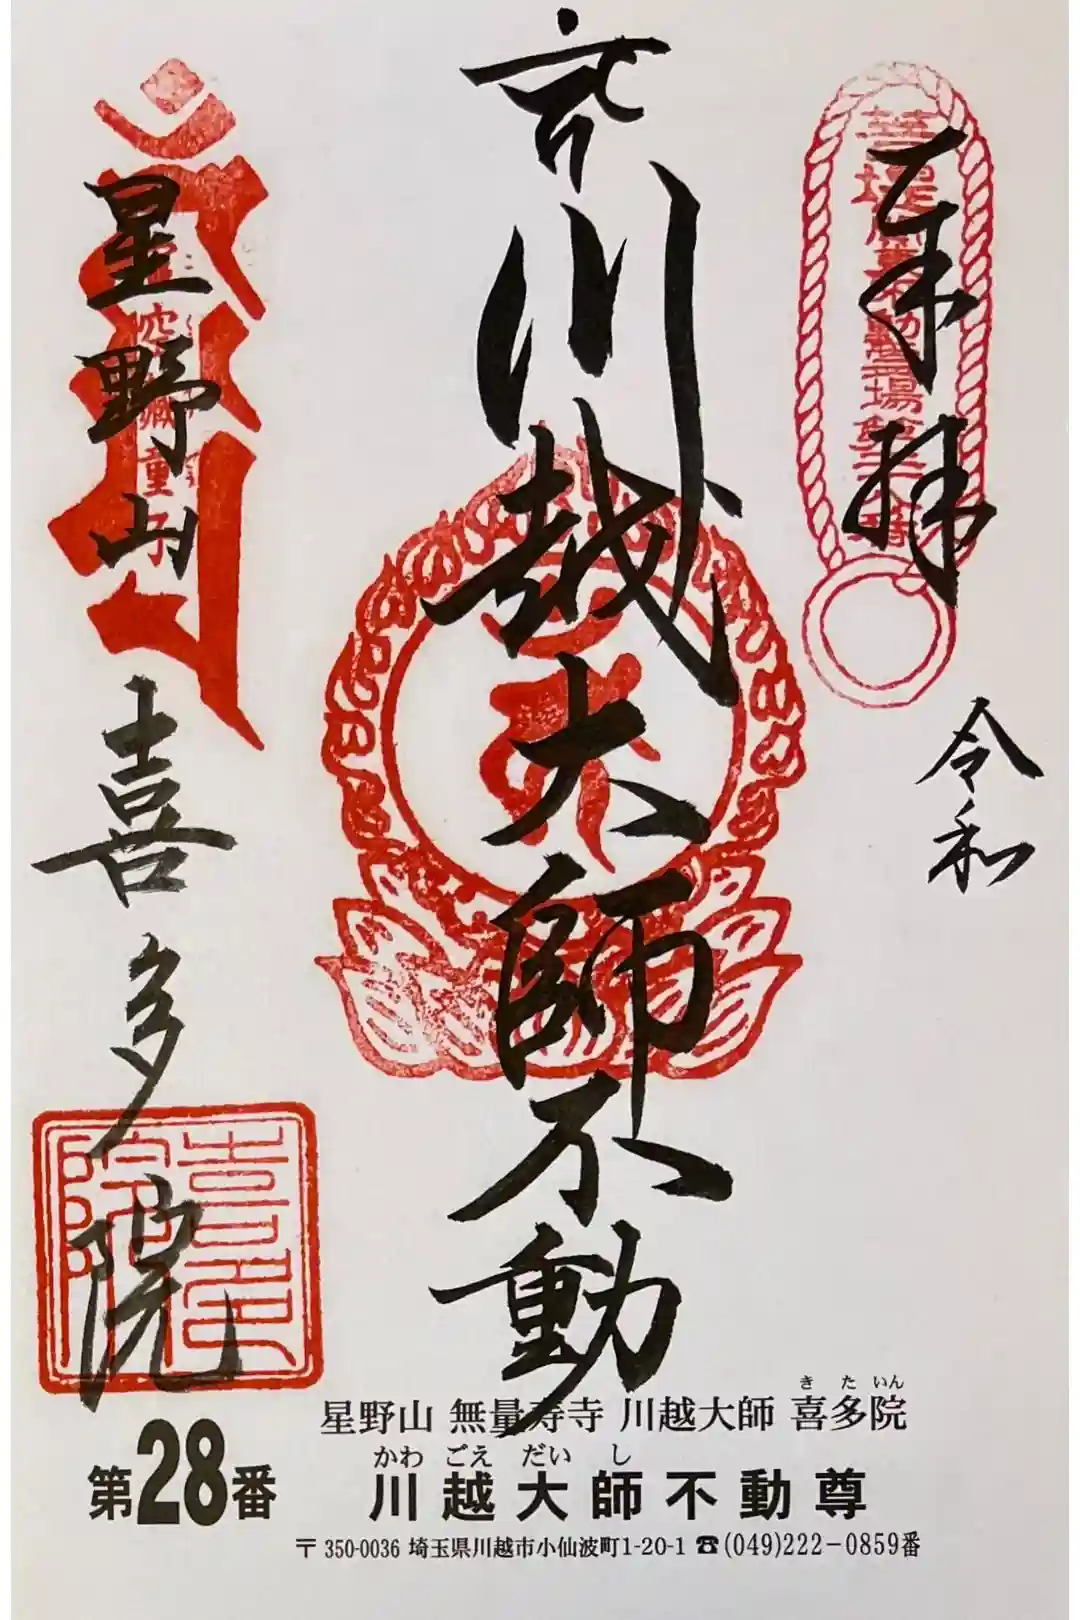 奉拝
令和
川越大師不動
星野山
喜多院
星野山 無量寿寺 川越大師 喜多院
きたいん
第28番
川越大師不動尊
かわごえだいし
〒350-0036 埼玉県川越市小仙波町1-20-1 ☎(049)222-0859番